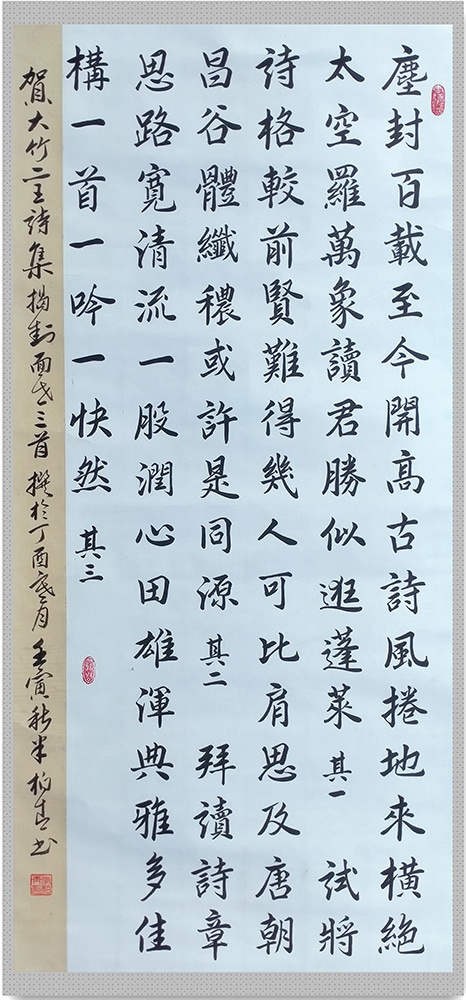 塵封百載至今開高古詩風捲地來橫絕
太空羅萬象讀君勝似逛蓬萊 其一 試將
詩格較前賢難得幾人可比肩思及唐朝
昌谷體纖穠或許是同源 其二 拜讀詩章
思路寬清流一股潤心田雄渾典雅多佳
構一首一吟一快然 其三
賀大竹二王詩集揭封面世三首 撰於丁酉寒月 壬寅秋半柏青书